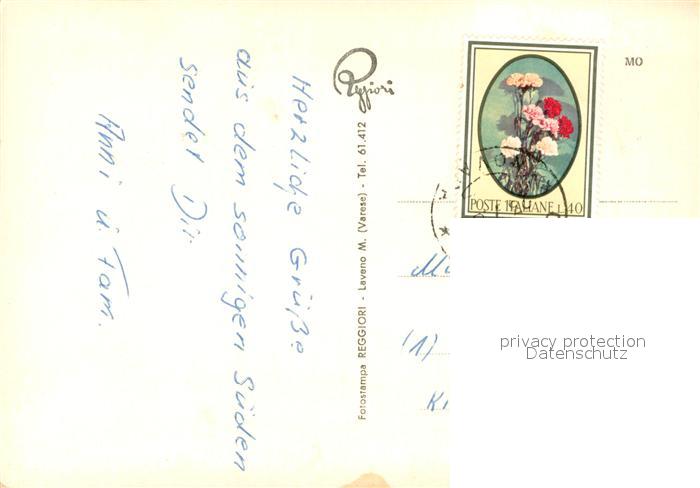 Herzliche Grüße
aus dem sonnigen Süden
sendet Dir
Anni u. Fam.
Reggiori
Fotostampa REGGIORI - Laveno M. (Varese) - Tel. 61.412
MO
POSTE ITALIANE L.40
(1)
privacy protection
Datenschutz